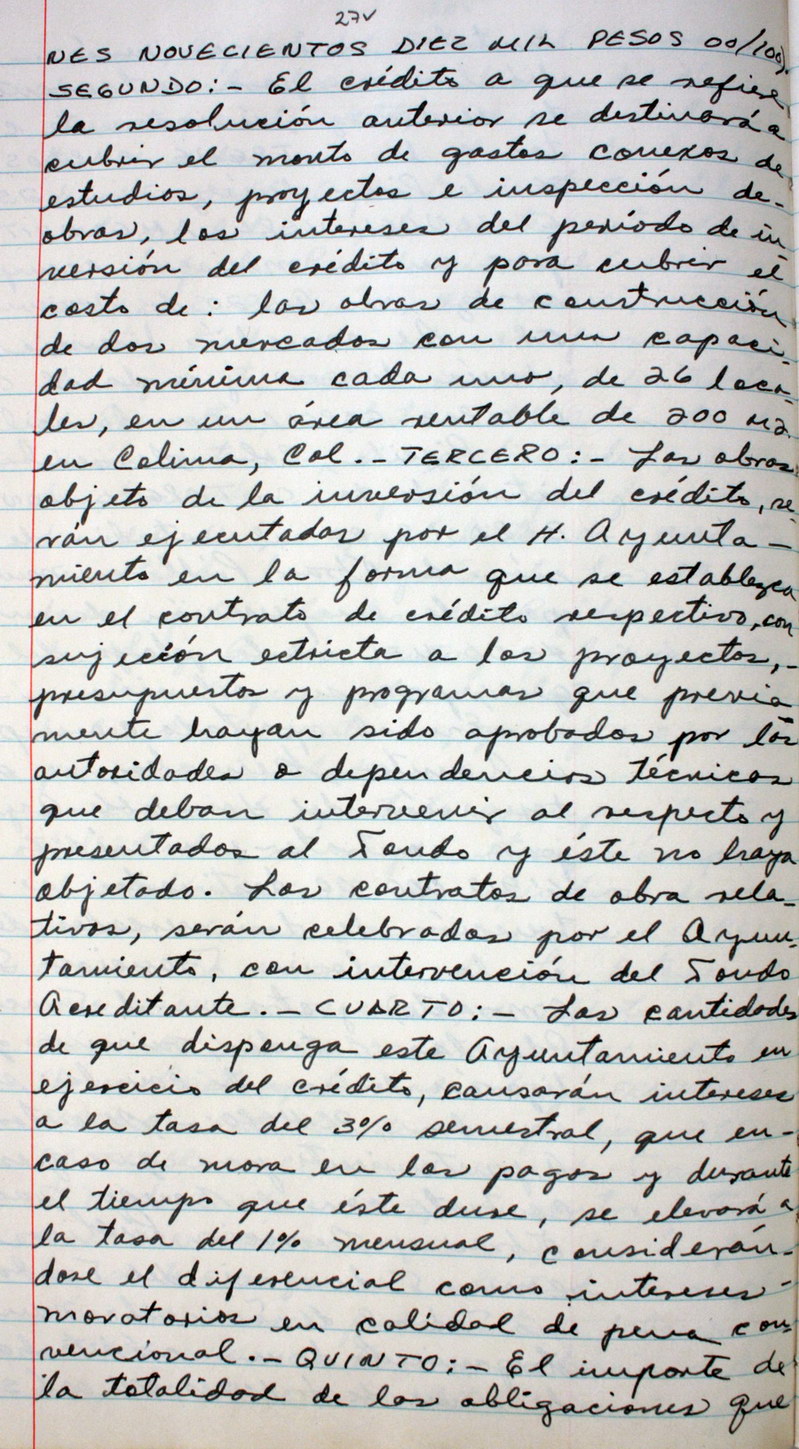 27v
NES NOVECIENTOS DIEZ MIL PESOS 00/100).
SEGUNDO:- El crédito a que se refiere
la resolución anterior se destinará a
cubrir el monto de gastos conexos de
estudios, proyectos e inspección de-
obras, los intereses del período de in
versión del crédito y para cubrir el
costo de: las obras de construcción
de dos mercados con una capaci-
dad mínima cada uno, de 26 loca-
les, en un área rentable de 200 M2
en Colima, Col.- TERCERO:- Las obras
objeto de la inversión del crédito, se
rán ejecutadas por el H. Ayunta-
miento en la forma que se establezca
en el contrato de crédito respectivo, con
sujeción ectricta a los proyectos,-
presupuestos y programas que previa
mente hayan sido aprobados por las
autoridades o dependencias técnicas
que deban intervenir al respecto y
presentados al Fondo y éste no haya
objetado. Los contratos de obra rela-
tivos, serán celebrados por el Ayun-
tamiento, con intervención del Fondo
Acreditante.- CUARTO:- Las cantidades
de que disponga este Ayuntamiento en
ejercicio del crédito, causarán intereses
a la tasa del 3% semestral, que en-
caso de mora en los pagos y durante
el tiempo que éste dure, se elevará a
la tasa del 1% mensual, considerán-
dose el diferencial como intereses-
moratorios en calidad de pena con
vencional.- QUINTO:- El importe de
la totalidad de las obligaciones que